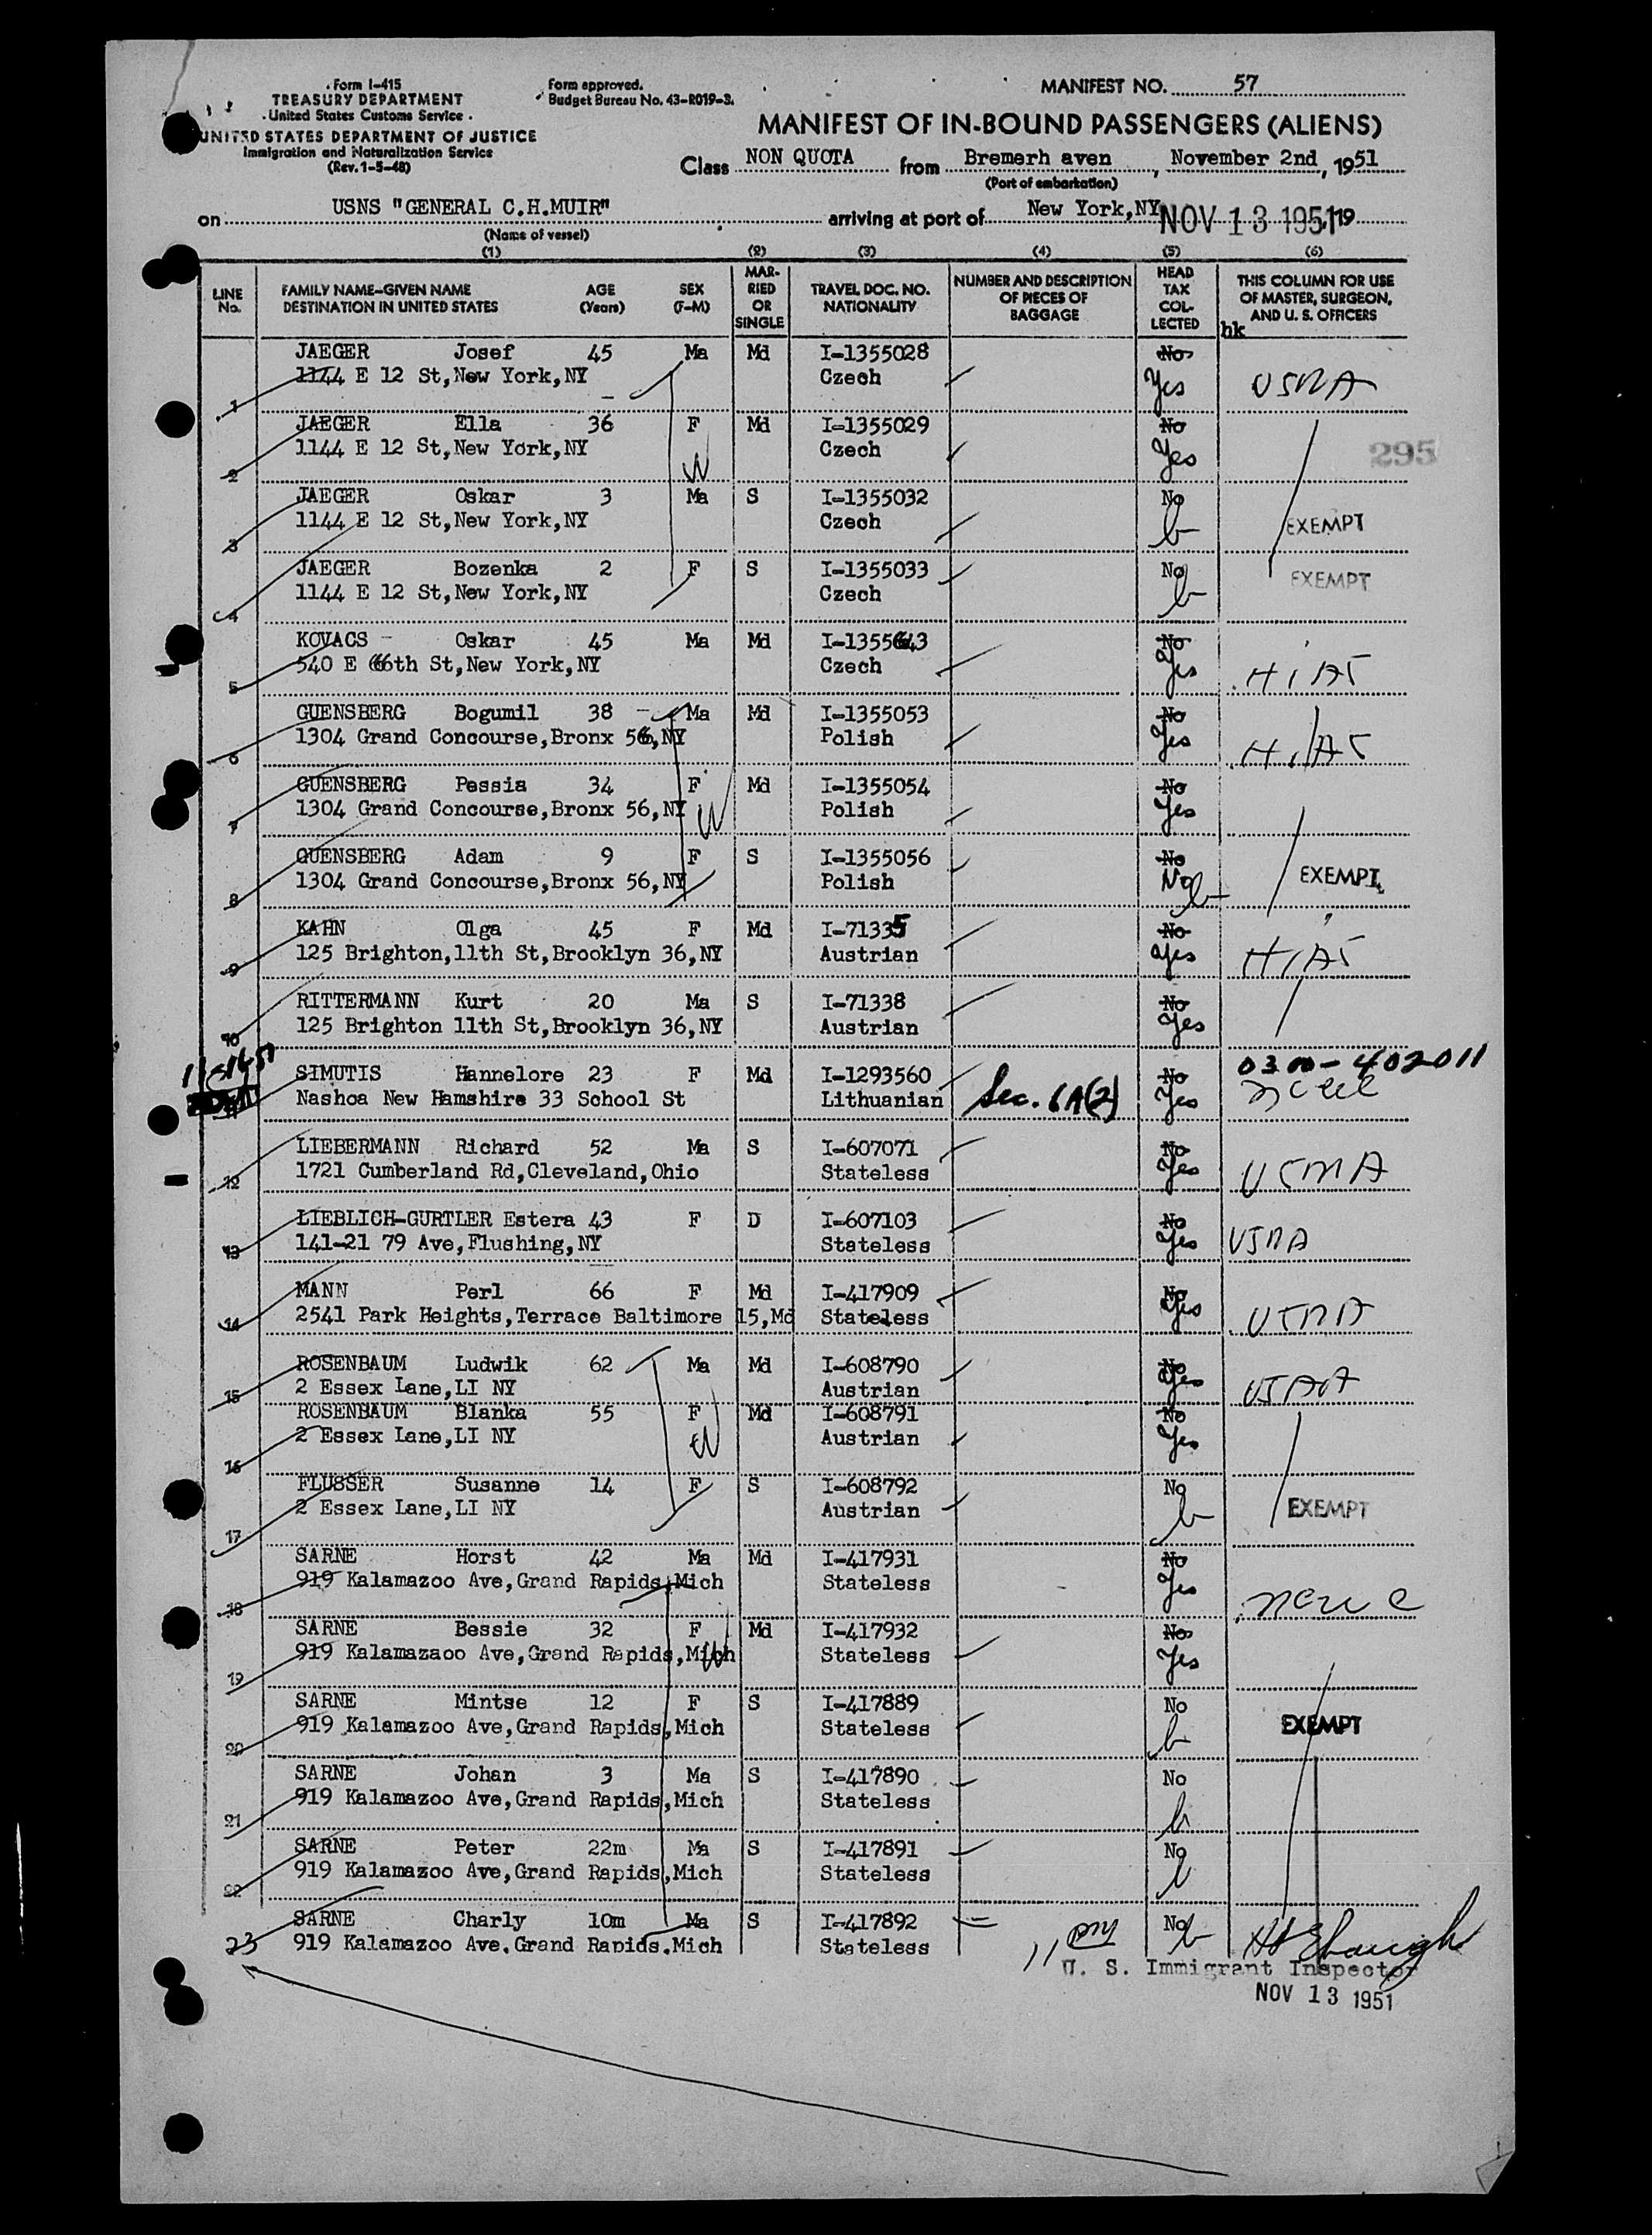 Form I-415
TREASURY DEPARTMENT
United States Customs Service
UNITED STATES DEPARTMENT OF JUSTICE
Immigration and Naturalization Service
(Rev. 1-5-48)
Form approved.
Budget Bureau No. 43-R019-3.
MANIFEST NO. 57
MANIFEST OF IN-BOUND PASSENGERS (ALIENS)
Class NON QUOTA from Bremerh aven, November 2nd, 1951
(Port of embarkation)
on USNS "GENERAL C.H.MUIR" arriving at port of New York,NY NOV 13 1951 19
(Name of vessel)
(1) (2) (3) (4) (5) (6)
LINE No. FAMILY NAME-GIVEN NAME DESTINATION IN UNITED STATES AGE (Years) SEX (F-M) MARRIED OR SINGLE TRAVEL DOC. NO. NATIONALITY NUMBER AND DESCRIPTION OF PIECES OF BAGGAGE HEAD TAX COLLECTED THIS COLUMN FOR USE OF MASTER, SURGEON, AND U. S. OFFICERS
hk
JAEGER Josef 45 Ma Md I-1355028 No
1 1144 E 12 St,New York,NY Czech Yes USNA
JAEGER Ella 36 F Md I-1355029 No
2 1144 E 12 St,New York,NY Czech Yes 295
JAEGER Oskar 3 Ma S I-1355032 No
3 1144 E 12 St,New York,NY Czech EXEMPT
JAEGER Bozenka 2 F S I-1355033 No EXEMPT
4 1144 E 12 St,New York,NY Czech
KOVACS Oskar 45 Ma Md I-1355643 No
5 540 E 66th St,New York,NY Czech Yes HIAS
GUENSBERG Bogumil 38 Ma Md I-1355053 No
6 1304 Grand Concourse,Bronx 56,NY Polish Yes HIAS
GUENSBERG Pessia 34 F Md I-1355054 No
7 1304 Grand Concourse,Bronx 56,NY Polish Yes
GUENSBERG Adam 9 F S I-1355056 No
8 1304 Grand Concourse,Bronx 56,NY Polish No EXEMPT
KAHN Olga 45 F Md I-71335 No
9 125 Brighton,11th St,Brooklyn 36,NY Austrian Yes HIAS
RITTERMANN Kurt 20 Ma S I-71338 No
10 125 Brighton 11th St,Brooklyn 36,NY Austrian Yes
0300-402011
SIMUTIS Hannelore 23 F Md I-1293560 No
11 Nashoa New Hamshire 33 School St Lithuanian Sec. 6A(2) Yes
LIEBERMANN Richard 52 Ma S I-607071 No
12 1721 Cumberland Rd,Cleveland,Ohio Stateless Yes USNA
LIEBLICH-GURTLER Estera 43 F D I-607103 No
13 141-21 79 Ave,Flushing,NY Stateless Yes USNA
MANN Perl 66 F Md I-417909 No
14 2541 Park Heights,Terrace Baltimore 15,Md Stateless Yes USNA
ROSENBAUM Ludwik 62 Ma Md I-608790 No
15 2 Essex Lane,LI NY Austrian Yes USNA
ROSENBAUM Blanka 55 F Md I-608791 No
16 2 Essex Lane,LI NY Austrian Yes
FLUSSER Susanne 14 F S I-608792 No
17 2 Essex Lane,LI NY Austrian EXEMPT
SARNE Horst 42 Ma Md I-417931 No
18 919 Kalamazoo Ave,Grand Rapids,Mich Stateless Yes
SARNE Bessie 32 F Md I-417932 No
19 919 Kalamazaoo Ave,Grand Rapids,Mich Stateless Yes
SARNE Mintse 12 F S I-417889 No
20 919 Kalamazoo Ave,Grand Rapids,Mich Stateless EXEMPT
SARNE Johan 3 Ma S I-417890 No
21 919 Kalamazoo Ave,Grand Rapids,Mich Stateless
SARNE Peter 22m Ma S I-417891 No
22 919 Kalamazoo Ave,Grand Rapids,Mich Stateless
SARNE Charly 10m Ma S I-417892 No
23 919 Kalamazoo Ave.Grand Rapids.Mich Stateless
U. S. Immigrant Inspector
NOV 13 1951